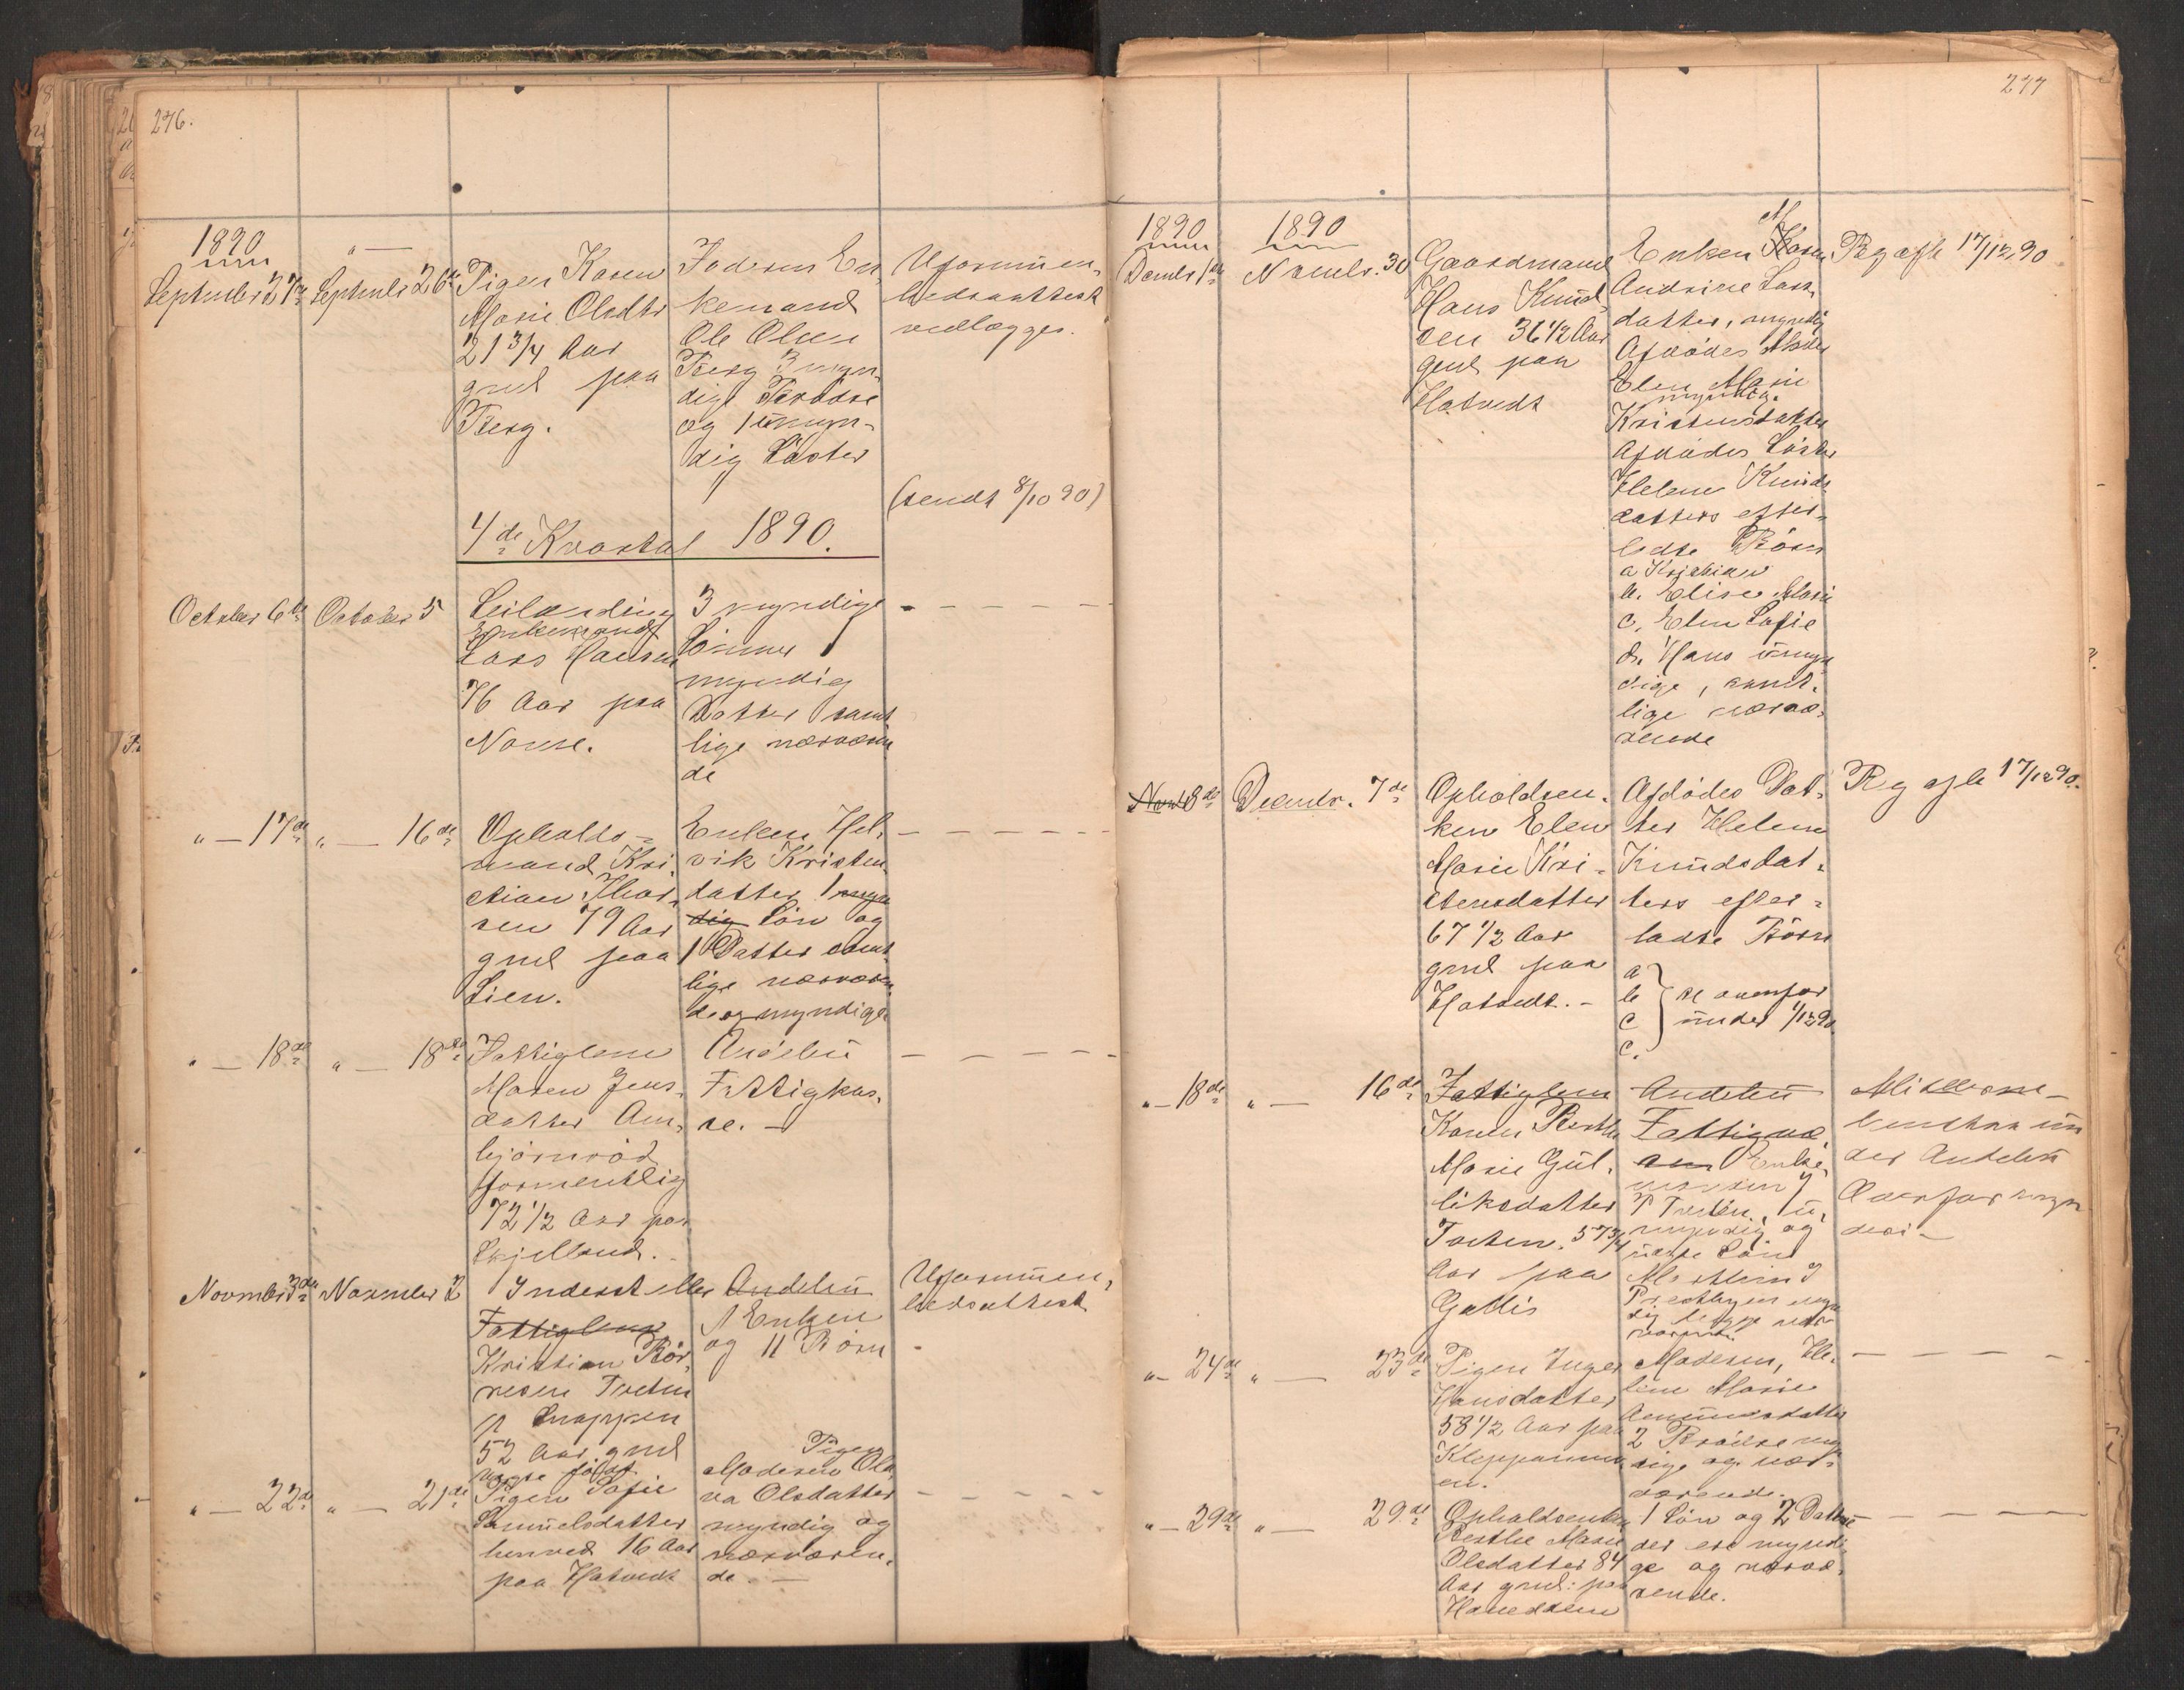 276.
1890
September 27de
"
September 26de
Pigen Karen
Marie Olsdtr
21 3/4 Aar
gml paa
Berg.
Faderen En
kemand
Ole Olsen
Berg 3 myn
dige Brødre
og 1 umyn-
dig Søster
Uformuen-
hedsattest
vedlægges.
(sendt 8/10 90)
4de Kvartal 1890.
October 6te
October 5
Leilænding
Enkemand
Lars Hansen
76 Aar paa
3 myndige
Sønner 1
myndig
Datter samt
lige nærværen
de
" — 17de
" — 16de
Opholds-
mand Kri
stian Thor
sen 79 Aar
gml paa
Lien.
Enken Hel-
vik Kristen
datter 1 myn
dig Søn og
1 Datter samt
lige nærværen
de og myndige
" — 18de
" — 18de
Fattiglem
Maren Jens
datter Am
bjørnrød
formentlig
72 1/2 Aar paa
Skjelland.
Andebu
Fattigkas
se. —
November 3de
November 2
Inderst eller
Fattiglem
Kristian Bør
resen Trolin
p Snappen
52 Aar gml
Pigen Sofie
Andebu
1 Enken
og 11 Børn
Uformuen-
hedsattest
" — 22de
" — 21de
Samuelsdatter
henved 16 Aar
paa Hatvedt
Pigen
Moderen Ole
va Olsdatter
myndig og
nærværen-
de. —
277
1890
Decmbr 1ste
1890
Novmbr. 30
Gaardmand
Hans Knud
sen 36 1/2 Aar
gml paa
Hatvedt
Enken Karen
Andrine Lars
datter, myndig
Afdødes Moder
Elen Marie
myndig.
Kristensdatter
Afdødes Søster
Helene Knuds
datters efter-
ladte Børn
a Kristian
b. Elise Marie
c. Elen Sofie
d. Hans umyn
dige, samt-
lige nærvæ-
rende
Reg afh 17/12 90
Novbr 8de
Decmbr. 7de
Opholdsen-
ken Elen
Marie Kri-
stensdatter
67 1/2 Aar
gml paa
Hatvedt. -
Afdødes Dat-
ter Helene
Knudsdat-
ters efter-
ladte Børn
a
b
c
c.
se ovenfor
under 1/12 90
Reg afh 17/12 90.
" — 18de
" — 16de
Fattiglem
Karen Berthe
Marie Gul-
liksdatter
Torten. 57 3/4
Aar paa
Gallis
Andebu
Fattigvæ
sen Enke
manden
umyndig og
næste Søn
" — 24de
" — 23de
Pigen Inger
Hansdatter
58 1/2 Aar paa
Kleppanmo
en.
Moderen, He-
lene Marie
2 Brødre myn
dige og nær-
værende.
" — 29de
" — 29de
Opholdsenken
Berthe Marie
Olsdatter 84
Aar gml: paa
1 Søn og 2 Døttre
der ere myndi
ge og nærvæ-
rende.